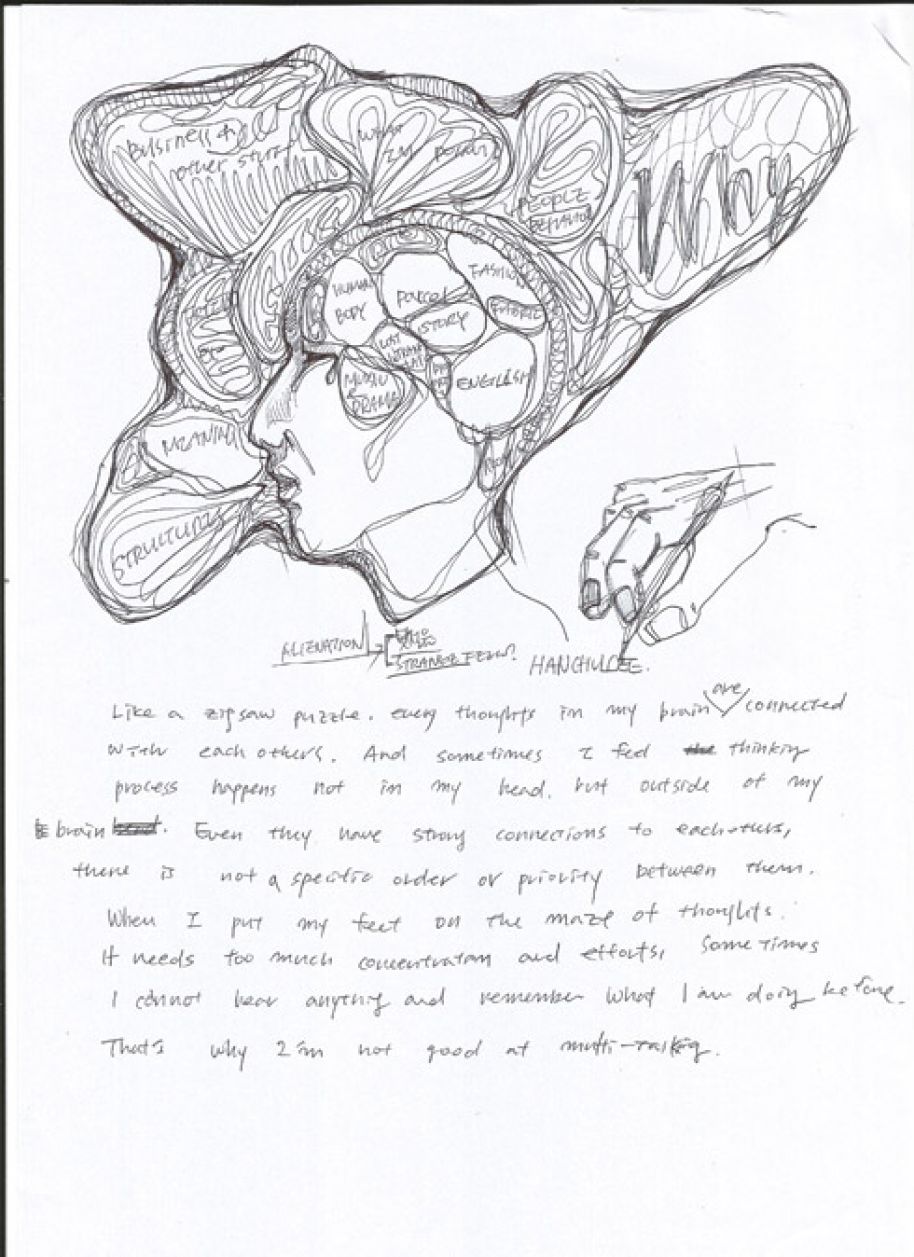 Business &
other stuff
PEOPLE
BEHAVIOR
Why
HUMAN
BODY
FASHION
FABRIC
STORY
MUSIC
DRAMA
ENGLISH
MEANING
STRUCTURE
ALIENATION
STRANGE FEEL?
HANCHULLEE.
Like a zigsaw puzzle. every thoughts in my brain are connected
with each others. And sometimes I feel the thinking
process happens not in my head. but outside of my
brain head. Even they have strong connections to eachothers,
there is not a specific order or priority between them.
When I put my feet on the maze of thoughts.
It needs too much concentration and efforts, Sometimes
I cannot hear anything and remember what I am doing before.
That's why I'm not good at multi-tasking.